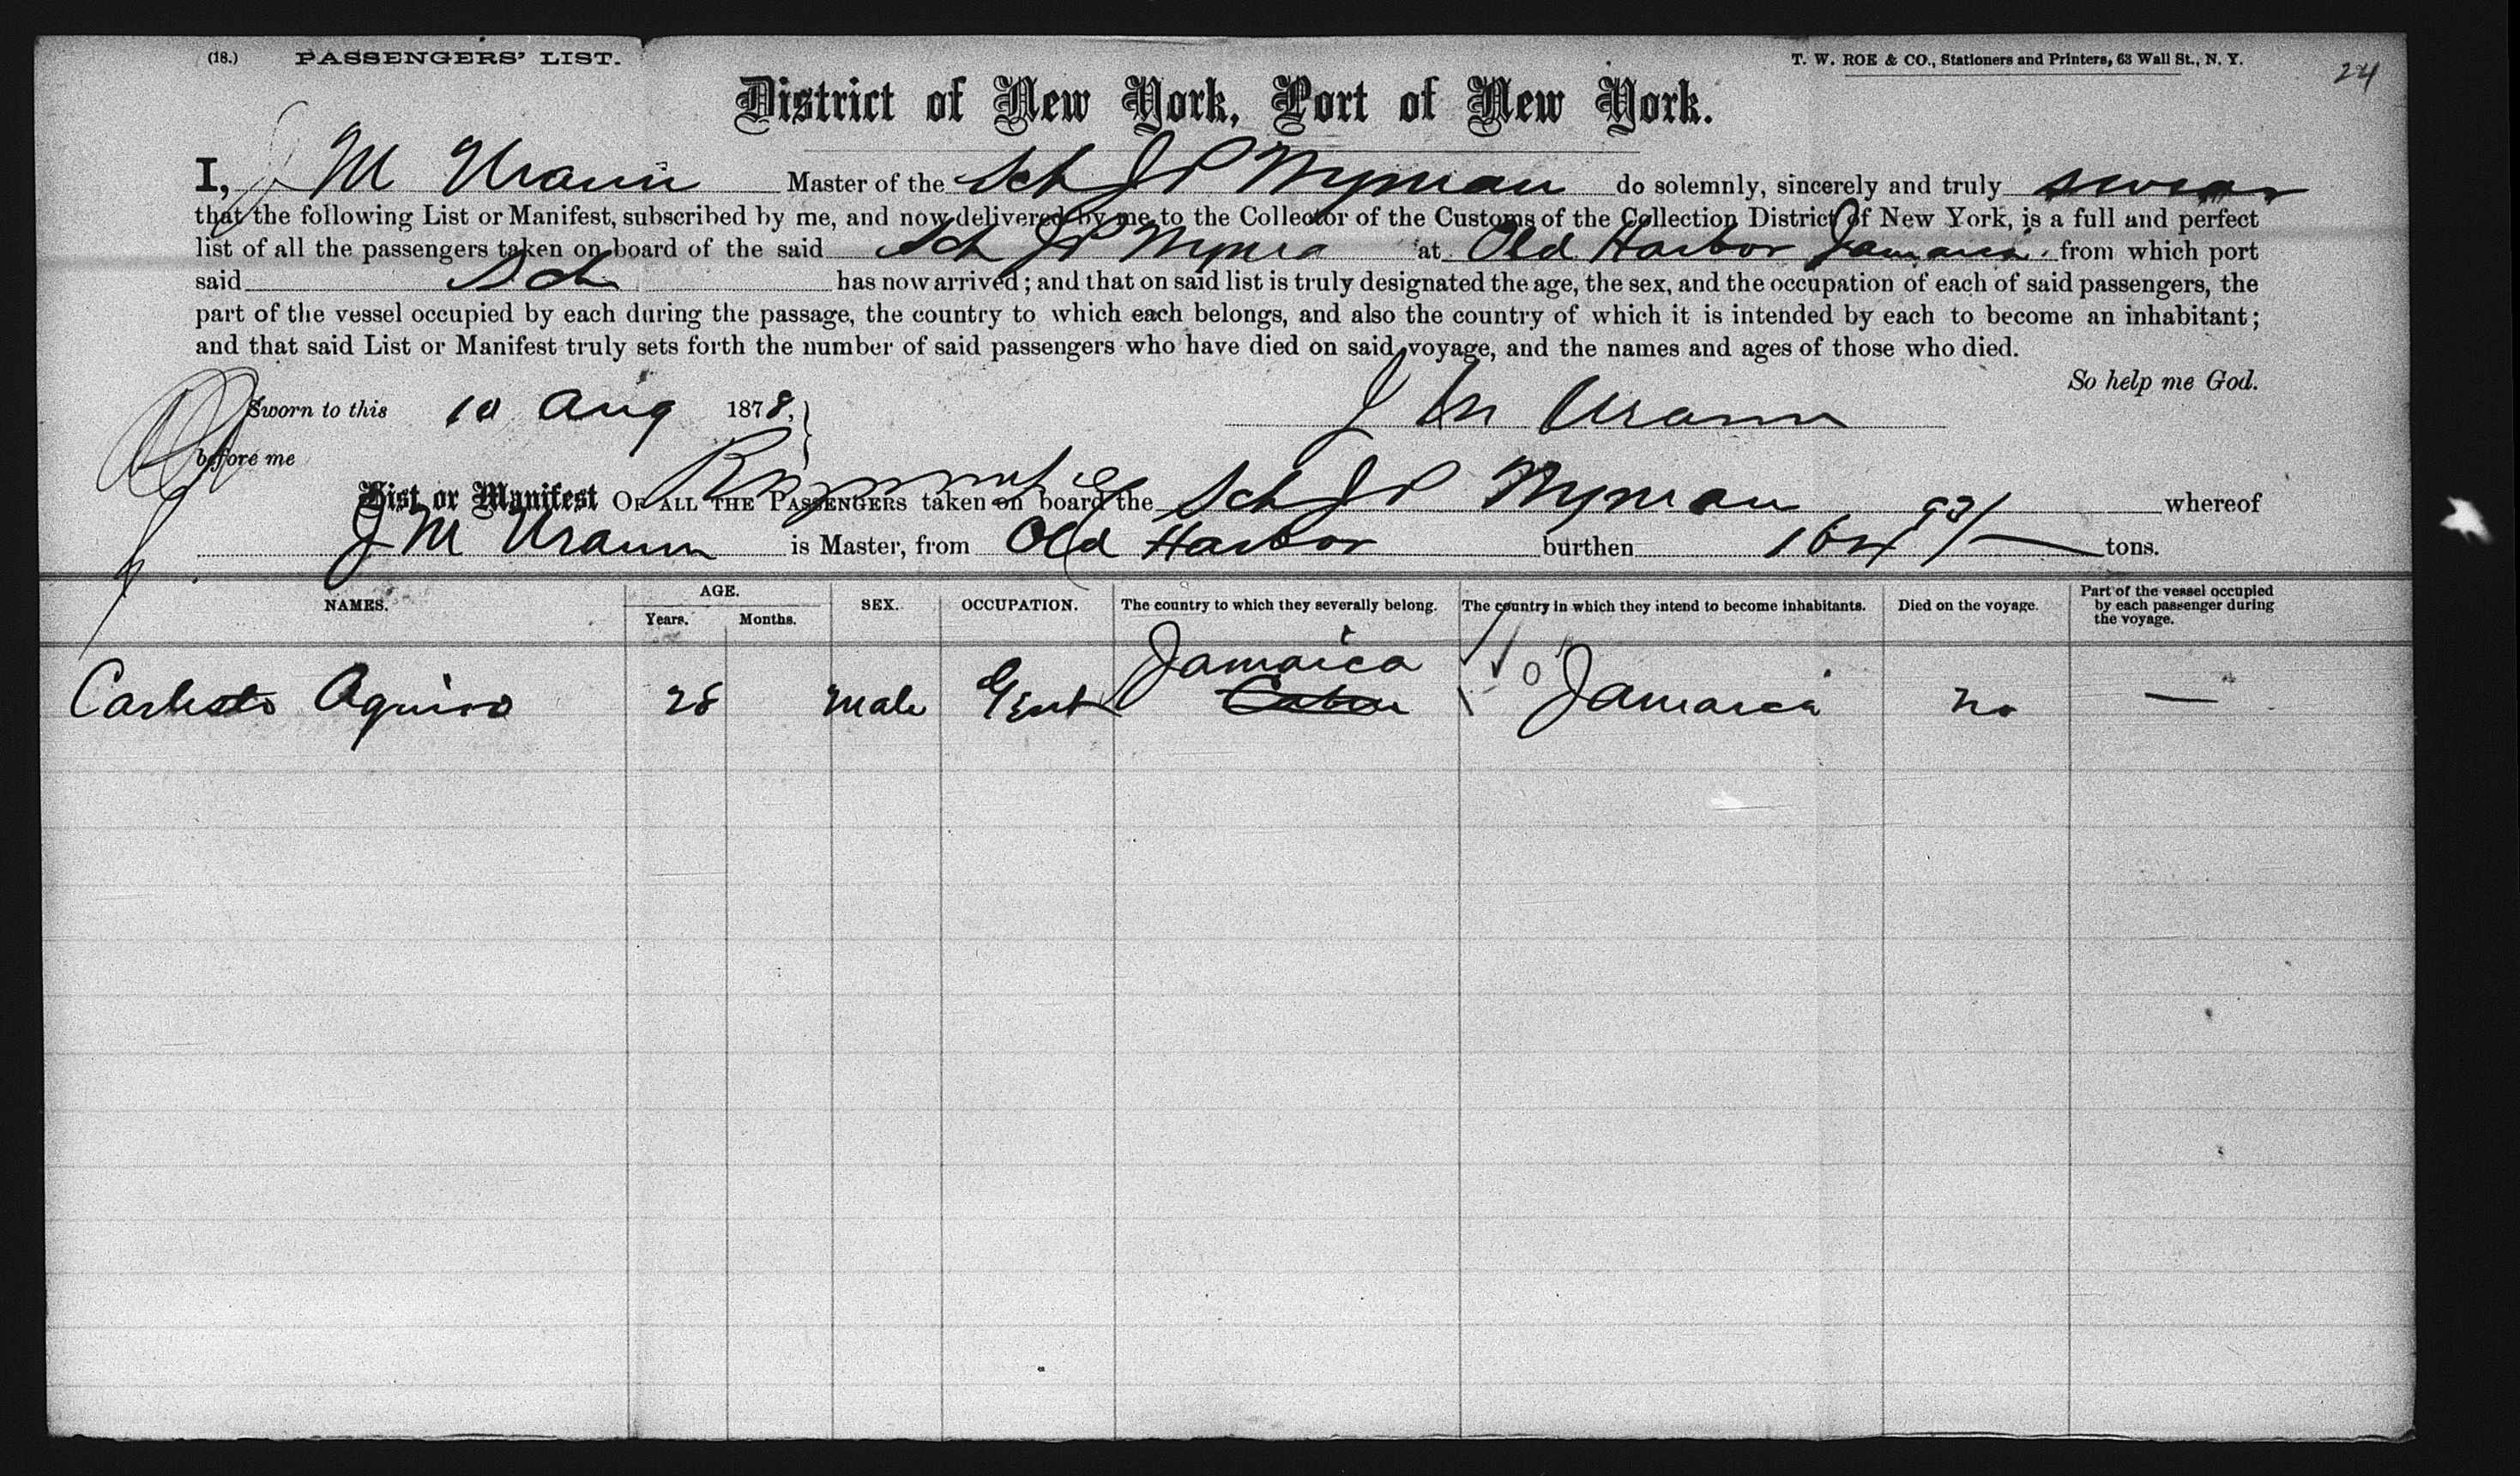 (18.) PASSENGERS' LIST. T. W. ROE & CO., Stationers and Printers, 63 Wall St., N. Y. 24
District of New York, Port of New York.
I, J M Urann Master of the Sch J P Wyman do solemnly, sincerely and truly swear
that the following List or Manifest, subscribed by me, and now delivered by me to the Collector of the Customs of the Collection District of New York, is a full and perfect
list of all the passengers taken on board of the said Sch J P at Old Harbor Jamaica from which port
said Sch has now arrived; and that on said list is truly designated the age, the sex, and the occupation of each of said passengers, the
part of the vessel occupied by each during the passage, the country to which each belongs, and also the country of which it is intended by each to become an inhabitant;
and that said List or Manifest truly sets forth the number of said passengers who have died on said voyage, and the names and ages of those who died.
So help me God.
Sworn to this 10 Aug 1878, J M Urann
before me
List or Manifest OF ALL THE PASSENGERS taken on board the Sch J P Wyman whereof
J M Urann is Master, from Old Harbor burthen 164 93/ tons.
NAMES. AGE. Years. Months. SEX. OCCUPATION. The country to which they severally belong. The country in which they intend to become inhabitants. Died on the voyage. Part of the vessel occupied by each passenger during the voyage.
Jamaica
28 male Gent Jamaica no —